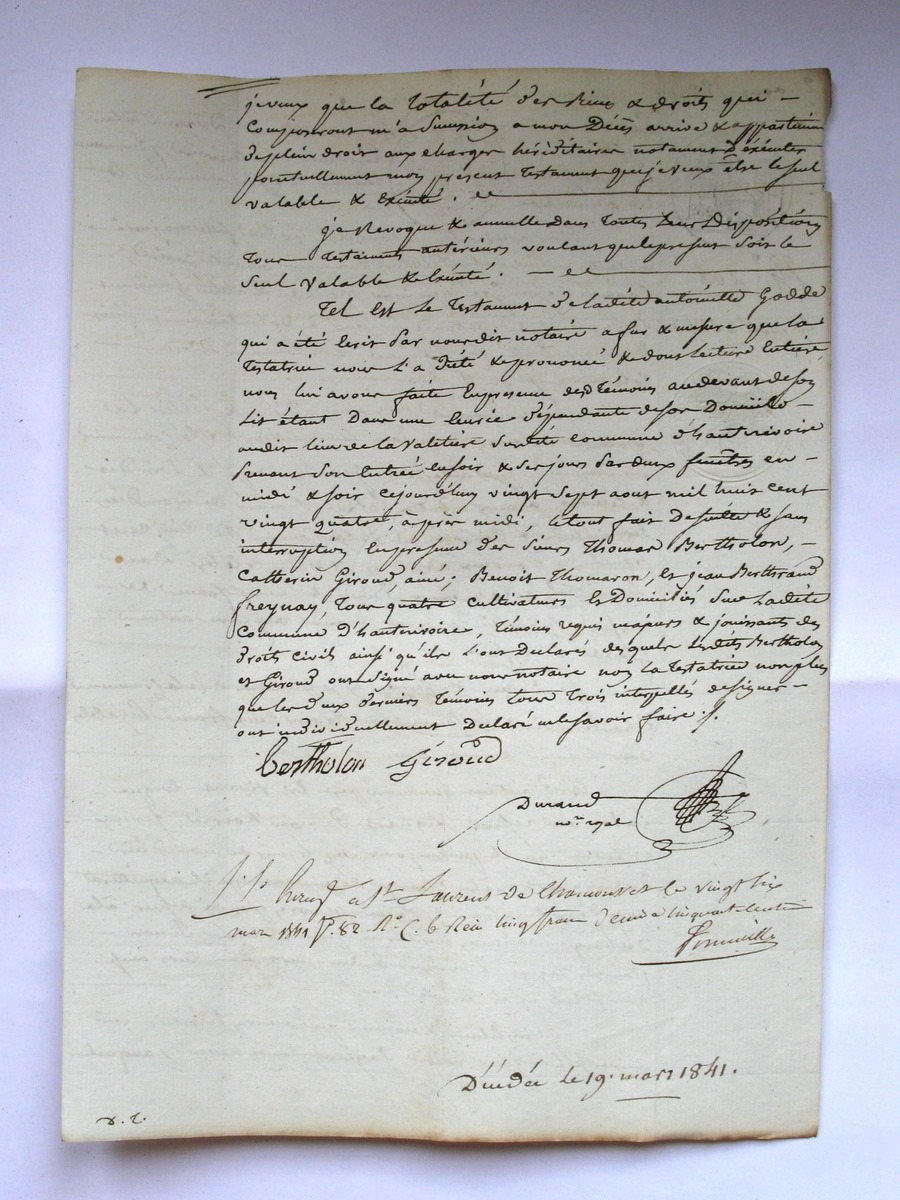 je veux que la totalité des biens & droits qui -
composeront m'a Succession a mon Décès arrive & appartienne
de plein droit aux charges héréditaires notament d'exécuter
ponctuellement mon présent Testament que je veux être le seul
valable & Exécuté.
je Revoque & annulle dans Toutes Leurs Dispositions
Tous Testaments antérieurs voulant que le present soit le
seul valable & Exécuté. -
Tel Est Le Testament de ladite antoinette Godde
qui a été Ecrit par nous dit notaire a fur & mesure que la
Testatrice nous L'a Dicté & prononcé & dont Lecture Entière
nous lui avons faite En presence des Témoins au devant de son
Lit étant Dans une dépendante de son Domicile -
audit lieu de la Valetiere Susdite commune d'hauterivoire
prenant son Entrée en soir & ses jours par deux fenêtres en -
midi & soir cejourd'huy vingt sept aout mil huit cent
vingt quatre, après midi, le tout fait de suitte & sans
interruption En presence des sieurs Thomas Bertholon, -
Catherin Giroud, ainé; Benoit Thomaron, Et jean Berthrand
freynay, Tous quatre cultivateurs Et Domiciliés Sur Ladite
Commune D'hauterivoire, Témoins requis majeurs & jouissants des
Droits civil ainsi qu'ils L'ont Declarés desquels Lesdits Bertholon
et Giroud ont signé avec nous notaire non la Testatrice non plus
que les deux derniers Témoins Tous Trois interpellés de signer -
ont individuellement Declaré ne le savoir faire ./.
Bertholon Giroud
Durand
nre royal
Enregé a St Laurent de Chamousset le vingt six
mars 1841 fo. 82 Ro. C. 6 Reçu cinq francs Decime cinquante centimes
Décédée le 19. mars 1841.